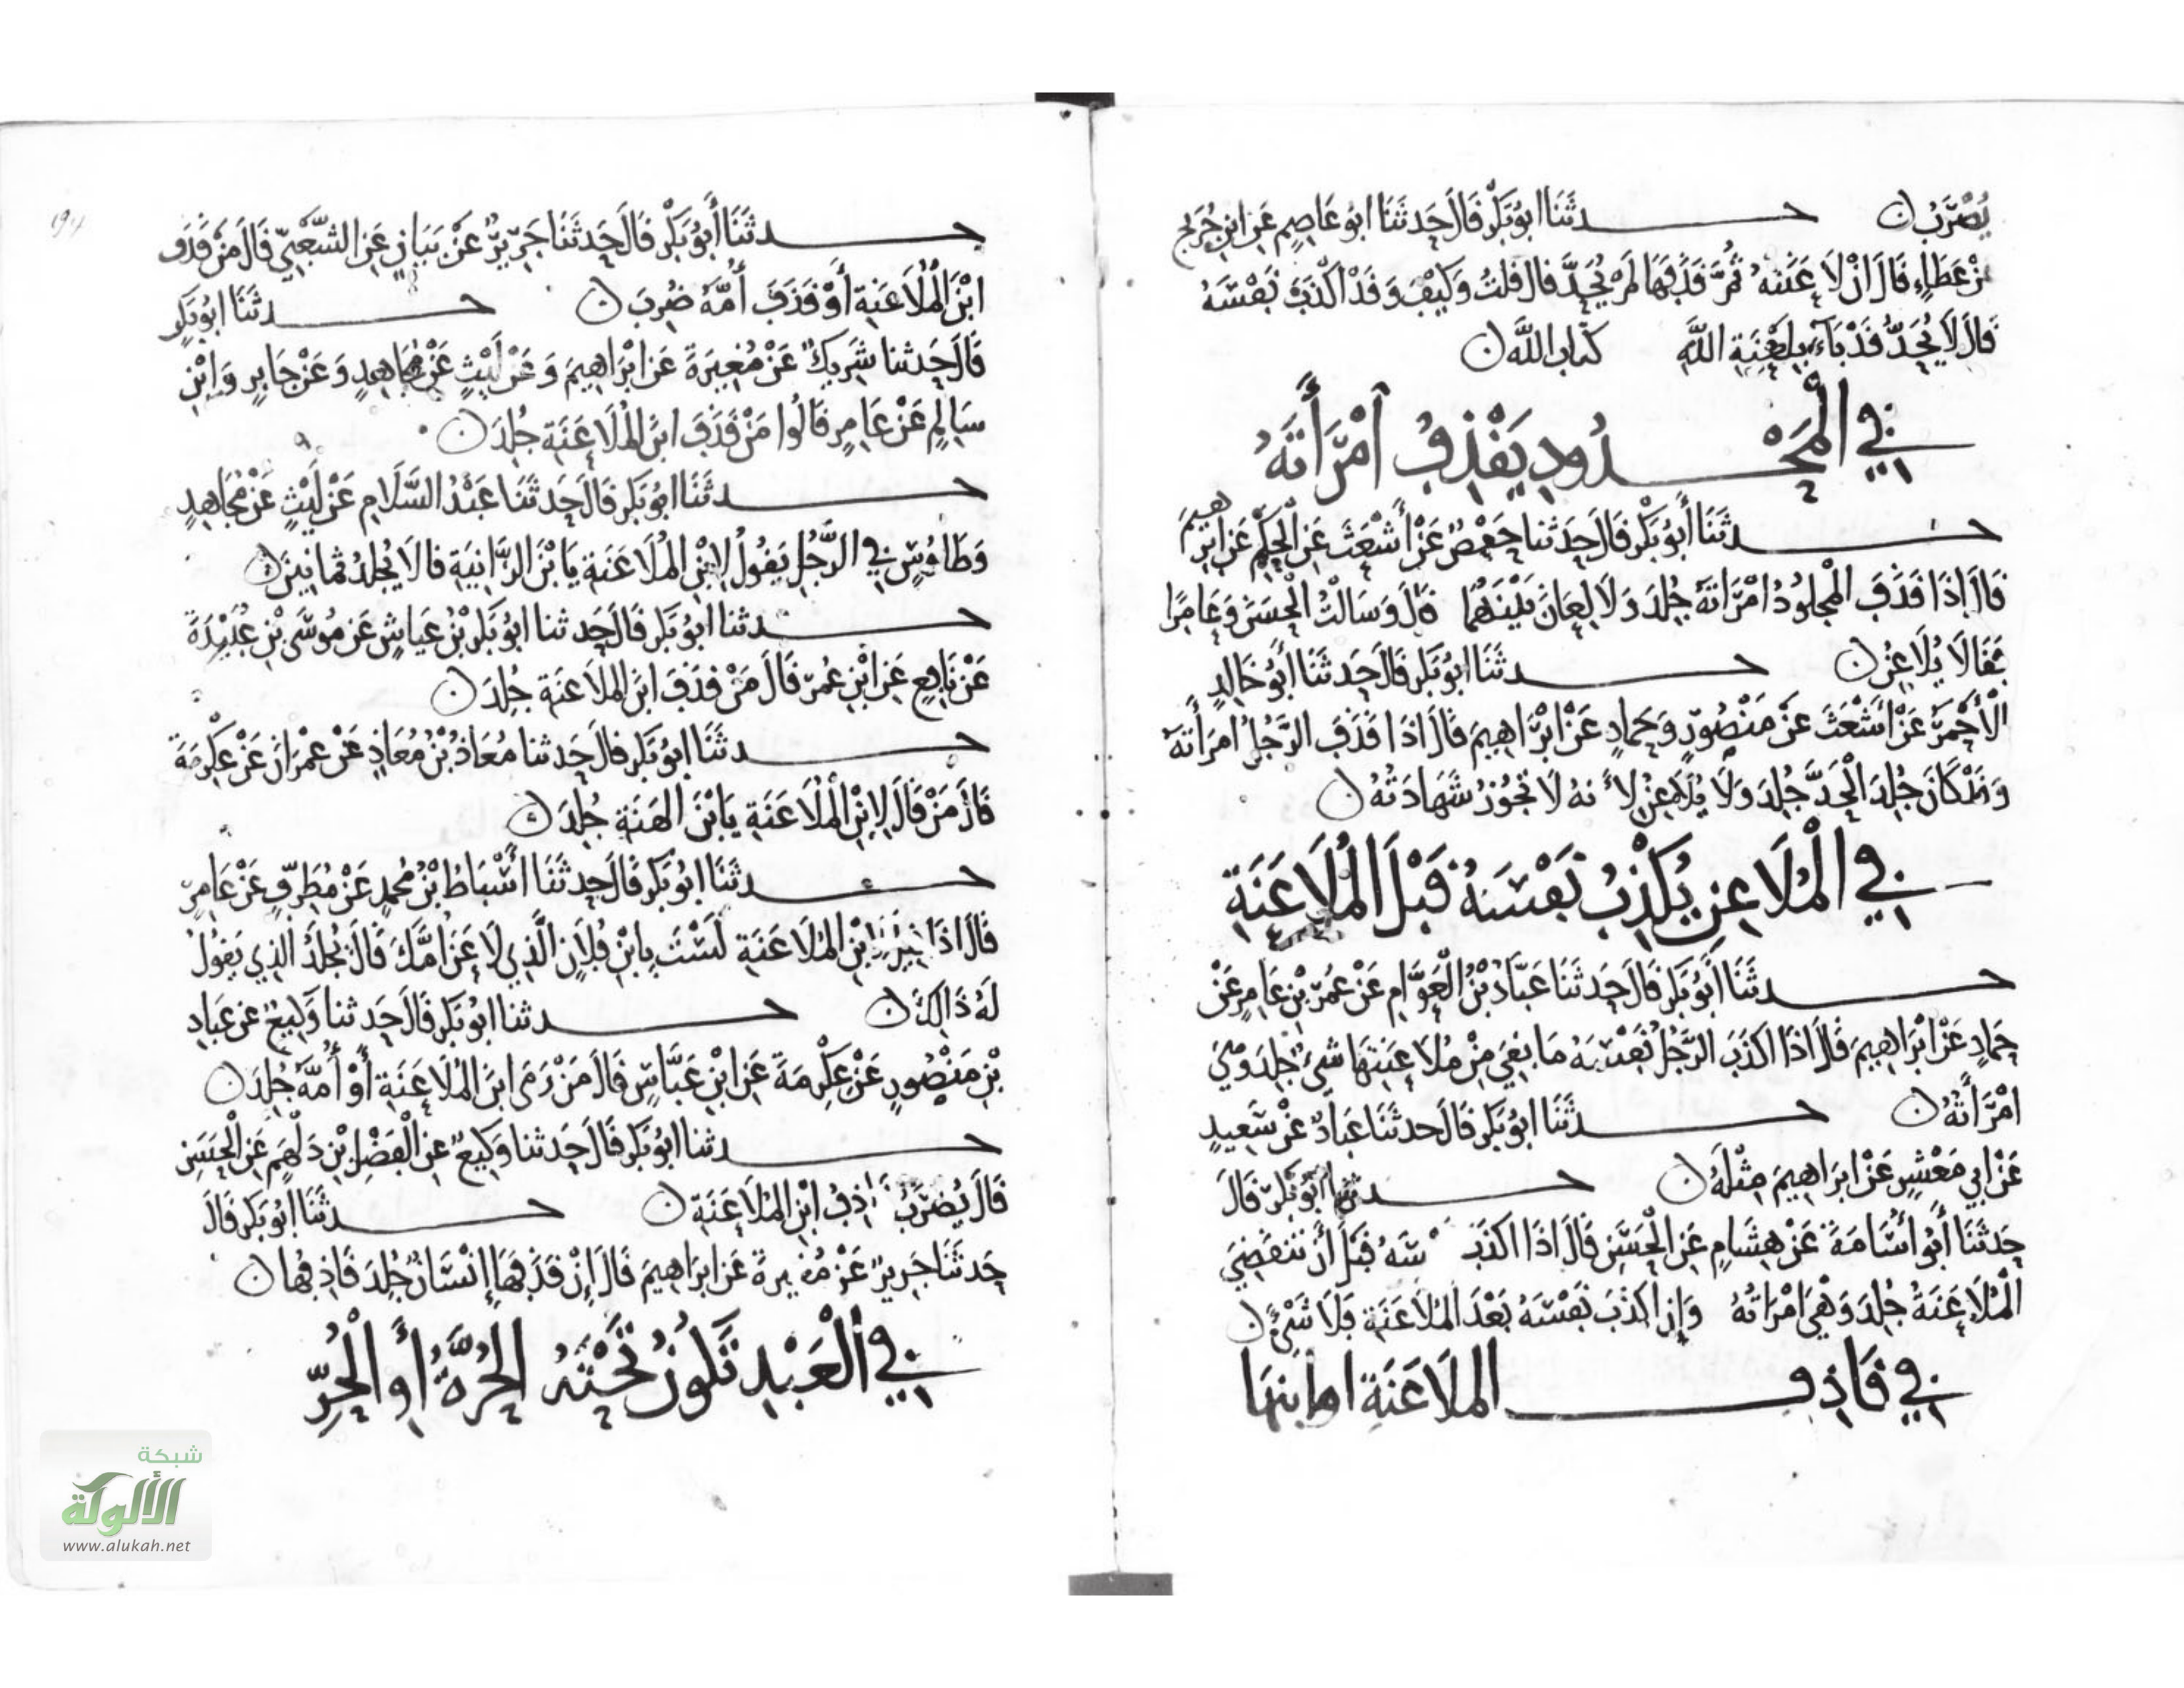 يُضْرَبُ ن حـــدثَنَا ابُو بَكْرٍ قَالَ حَدثَنَا ابُو عَاصِمٍ عَنِ ابنِ جُرَيجٍ
عَنْ عَطَاءٍ قَالَ اِنْ لَاعَنَتهُ ثُمَّ قَذَفَهَا لَمْ يُحَدَّ قال قلتُ وَكَيْفَ وَقَدْ اكْذَبَ نَفْسَهُ
قَالَ لَا يُحَدُّ قَدْ بَآءَ بِلَعْنَةِ اللَّهِ كتاب اللَّه ن
في المَحْـــدُودِ يَقْذِفُ اَمْرَأَتَهُ
حـــدثَنَا أَبُو بَكْرٍ قَالَ حَدثنا حَفْصٌ عَنْ أَشْعَثَ عَنِ الْحَكَمِ عَنِ ابْرَاهِيمَ
قَالَ اِذَا قَذَفَ الْمجلُودُ امْرَاتَهُ جُلِدَ وَلَا لِعَانَ بَيْنَهُمَا قَالَ وَسَالْتُ الْحَسَنَ وَعَامِرًا
فَقَالَا يُلَاعِنُ ن حـــدثَنَا ابُو بَكْرٍ قَالَ حَدثَنَا أَبُو خَالدٍ
الْأَحْمَرُ عَنْ أَشْعَثَ عَنْ مَنْصُورٍ وَحَمادٍ عَنْ ابْرَاهِيمَ قَالَ اذَا قَذَفَ الرَّجُلُ امْرَأَتَهُ
وَقَدْ كَانَ جُلِدَ الْحَدَّ جُلِدَ وَلَا يُلَاعِنُ لأَنهُ لَا تَجُوزُ شَهَادَتُهُ ن
في الْمُلَاعِنِ يُكَذِّبُ نَفْسَهُ قَبْلَ الْمُلَاعَنَةِ
حـــدثَنَا أَبُو بَكْرٍ قَالَ حَدثَنَا عَبَّادُ بْنُ الْعَوَّامِ عَنْ عُمَرَ بْنِ عَامِرٍ عَنْ
حَمادٍ عَنْ ابْرَاهِيمَ قَالَ اذَا اكْذَبَ الرَّجُلُ نَفْسَهُ مَا بَقِيَ مِنْ مُلَاعَنَتِهَا شيْءٌ جُلِدَ وَهِيَ
امْرَأَتُهُ ن حـــدثَنَا ابُو بَكْرٍ قَالَ حدثَنَا عَبادٌ عَنْ سَعِيدٍ
عَنْ ابي مَعْشَرٍ عَنْ ابرَاهِيمَ مِثْلَهُ ن حـــدثنا أبُو بَكْرٍ قَالَ
حَدثَنَا أَبُو أُسَامَةَ عَنْ هِشَامٍ عَنِ الْحَسَنِ قَالَ اذَا اكْذَبَ سَهُ قَبْلَ أَنْ تَنْقَضِيَ
الْمُلَاعَنَةُ جُلِدَ وَهِيَ امْرَاتُهُ وَاِن اكذَبَ نَفْسَهُ بَعْدَ الْمُلَاعَنَةِ فَلَا شَيْءَ ن
في قَاذِفِ ـــ الملَاعَنَةِ او ابنها
١٩٤
حـــدثَنَا أَبُو بَكْرٍ قَالَ حَدثَنَا جَرِيرٌ عَنْ بَيَانٍ عَنِ الشَّعْبِيِّ قَالَ مَنْ قَذَفَ
ابْنَ الْمُلَاعَنَةِ أَوْ قَذَفَ أُمَّهُ ضُرِبَ ن حـــدثَنَا ابُو بَكْرٍ
قَالَ حَدثنا شَرِيكٌ عَنْ مُغِيرَةَ عَنِ ابْرَاهِيمَ وَعَنْ لَيْثٍ عَنْ مُجَاهِدٍ وَعَنْ جَابِرٍ وَابْنِ
سَالِمٍ عَنْ عَامِرٍ قَالُوا مَنْ قَذَفَ ابْنَ الْمُلَاعَنَةِ جُلِدَ ن
حـــدثَنَا ابُو بَكْرٍ قَالَ حَدثَنَا عَبْدُ السَّلَامِ عَنْ لَيْثٍ عَنْ مُجَاهِدٍ
وَطَاوُسٍ في الرَّجُلِ يَقُولُ لِابْنِ الْمُلَاعَنَةِ يَا بْنَ الزَّانِيَةِ قالَا يُجْلدُ ثمانينَ ن
حـــدثنا ابُو بَكْرٍ قَالَ حَدثنا ابُو بَكْرِ بْنُ عَيَّاشٍ عَنْ مُوسَى بْنِ عُبَيْدَةَ
عَنْ نَافِعٍ عَنِ ابْنِ عُمَرَ قَالَ مَنْ قَذَفَ ابْنَ الملَاعَنَةِ جُلِدَ ن
حـــدثَنَا ابُو بَكْرٍ قَالَ حَدثنا مُعَاذُ بْنُ مُعَاذٍ عَنْ عِمْرَانَ عَنْ عِكْرِمَةَ
قَالَ مَنْ قَالَ لِابْنِ الْمُلَاعَنَةِ يَا بْنَ الهَنَةِ جُلِدَ ن
حـــدثَنَا ابُو بَكْرٍ قَالَ حَدثَنَا أَسْبَاطُ بْنُ مُحَمدٍ عَنْ مُطَرِّفٍ عَنْ عَامِرٍ
قَالَ اذَا قِيلَ لِابْنِ الْمُلَاعَنَةِ لَسْتَ بِابْنِ فُلَانٍ الَّذِي لَاعَنَ امَّكَ قَالَ يُجْلَدُ الَّذِي يَقُولُ
لَهُ ذَالِكَ ن حـــدثنا ابُو بَكْرٍ قَالَ حَدثنا وَكِيعٌ عن عَبادِ
بْنِ مَنْصُورٍ عَنْ عِكْرِمَةَ عَنِ ابْنِ عَبَّاسٍ قَالَ مَنْ رَمَى ابْنَ الْمُلَاعَنَةِ أَوْ أُمَّهُ جُلِدَ ن
حـــدثنا ابُو بَكْرٍ قَالَ حَدثنا وَكِيعٌ عن الْفَضْلِ بْنِ دَلْهَمٍ عَنِ الْحَسَنِ
قَالَ يُضْرَبُ اذِفُ ابْنِ الْمُلَاعَنَةِ ن حـــدثَنَا ابُو بَكْرٍ قَالَ
حَدثَنَا جَرِيرٌ عَنْ مُغِيرةَ عَنِ ابرَاهِيمَ قَالَ اِنْ قَذَفَهَا إِنْسَانٌ جُلِدَ قَاذِفُها ن
في الْعَبْدِ تَكُونُ تَحْتَهُ الحُرَّةُ أَوِ الْحُرِّ
شبكة
الألوكة
www.alukah.net